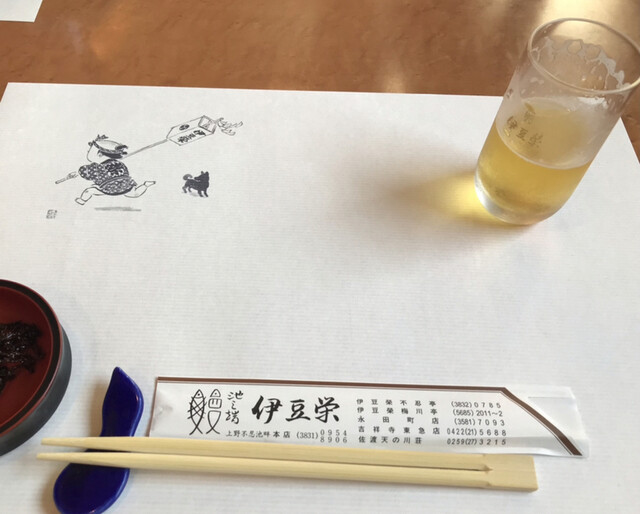 伊豆栄
伊豆栄
池之端
伊豆栄
上野不忍池畔本店(3831)0954
8906
伊豆栄不忍亭 (3832)0785
伊豆栄梅川亭 (5685)2011〜2
永田町店 (3581)7093
吉祥寺東急店 0422(21)5688
佐渡天の川荘 0259(27)3215